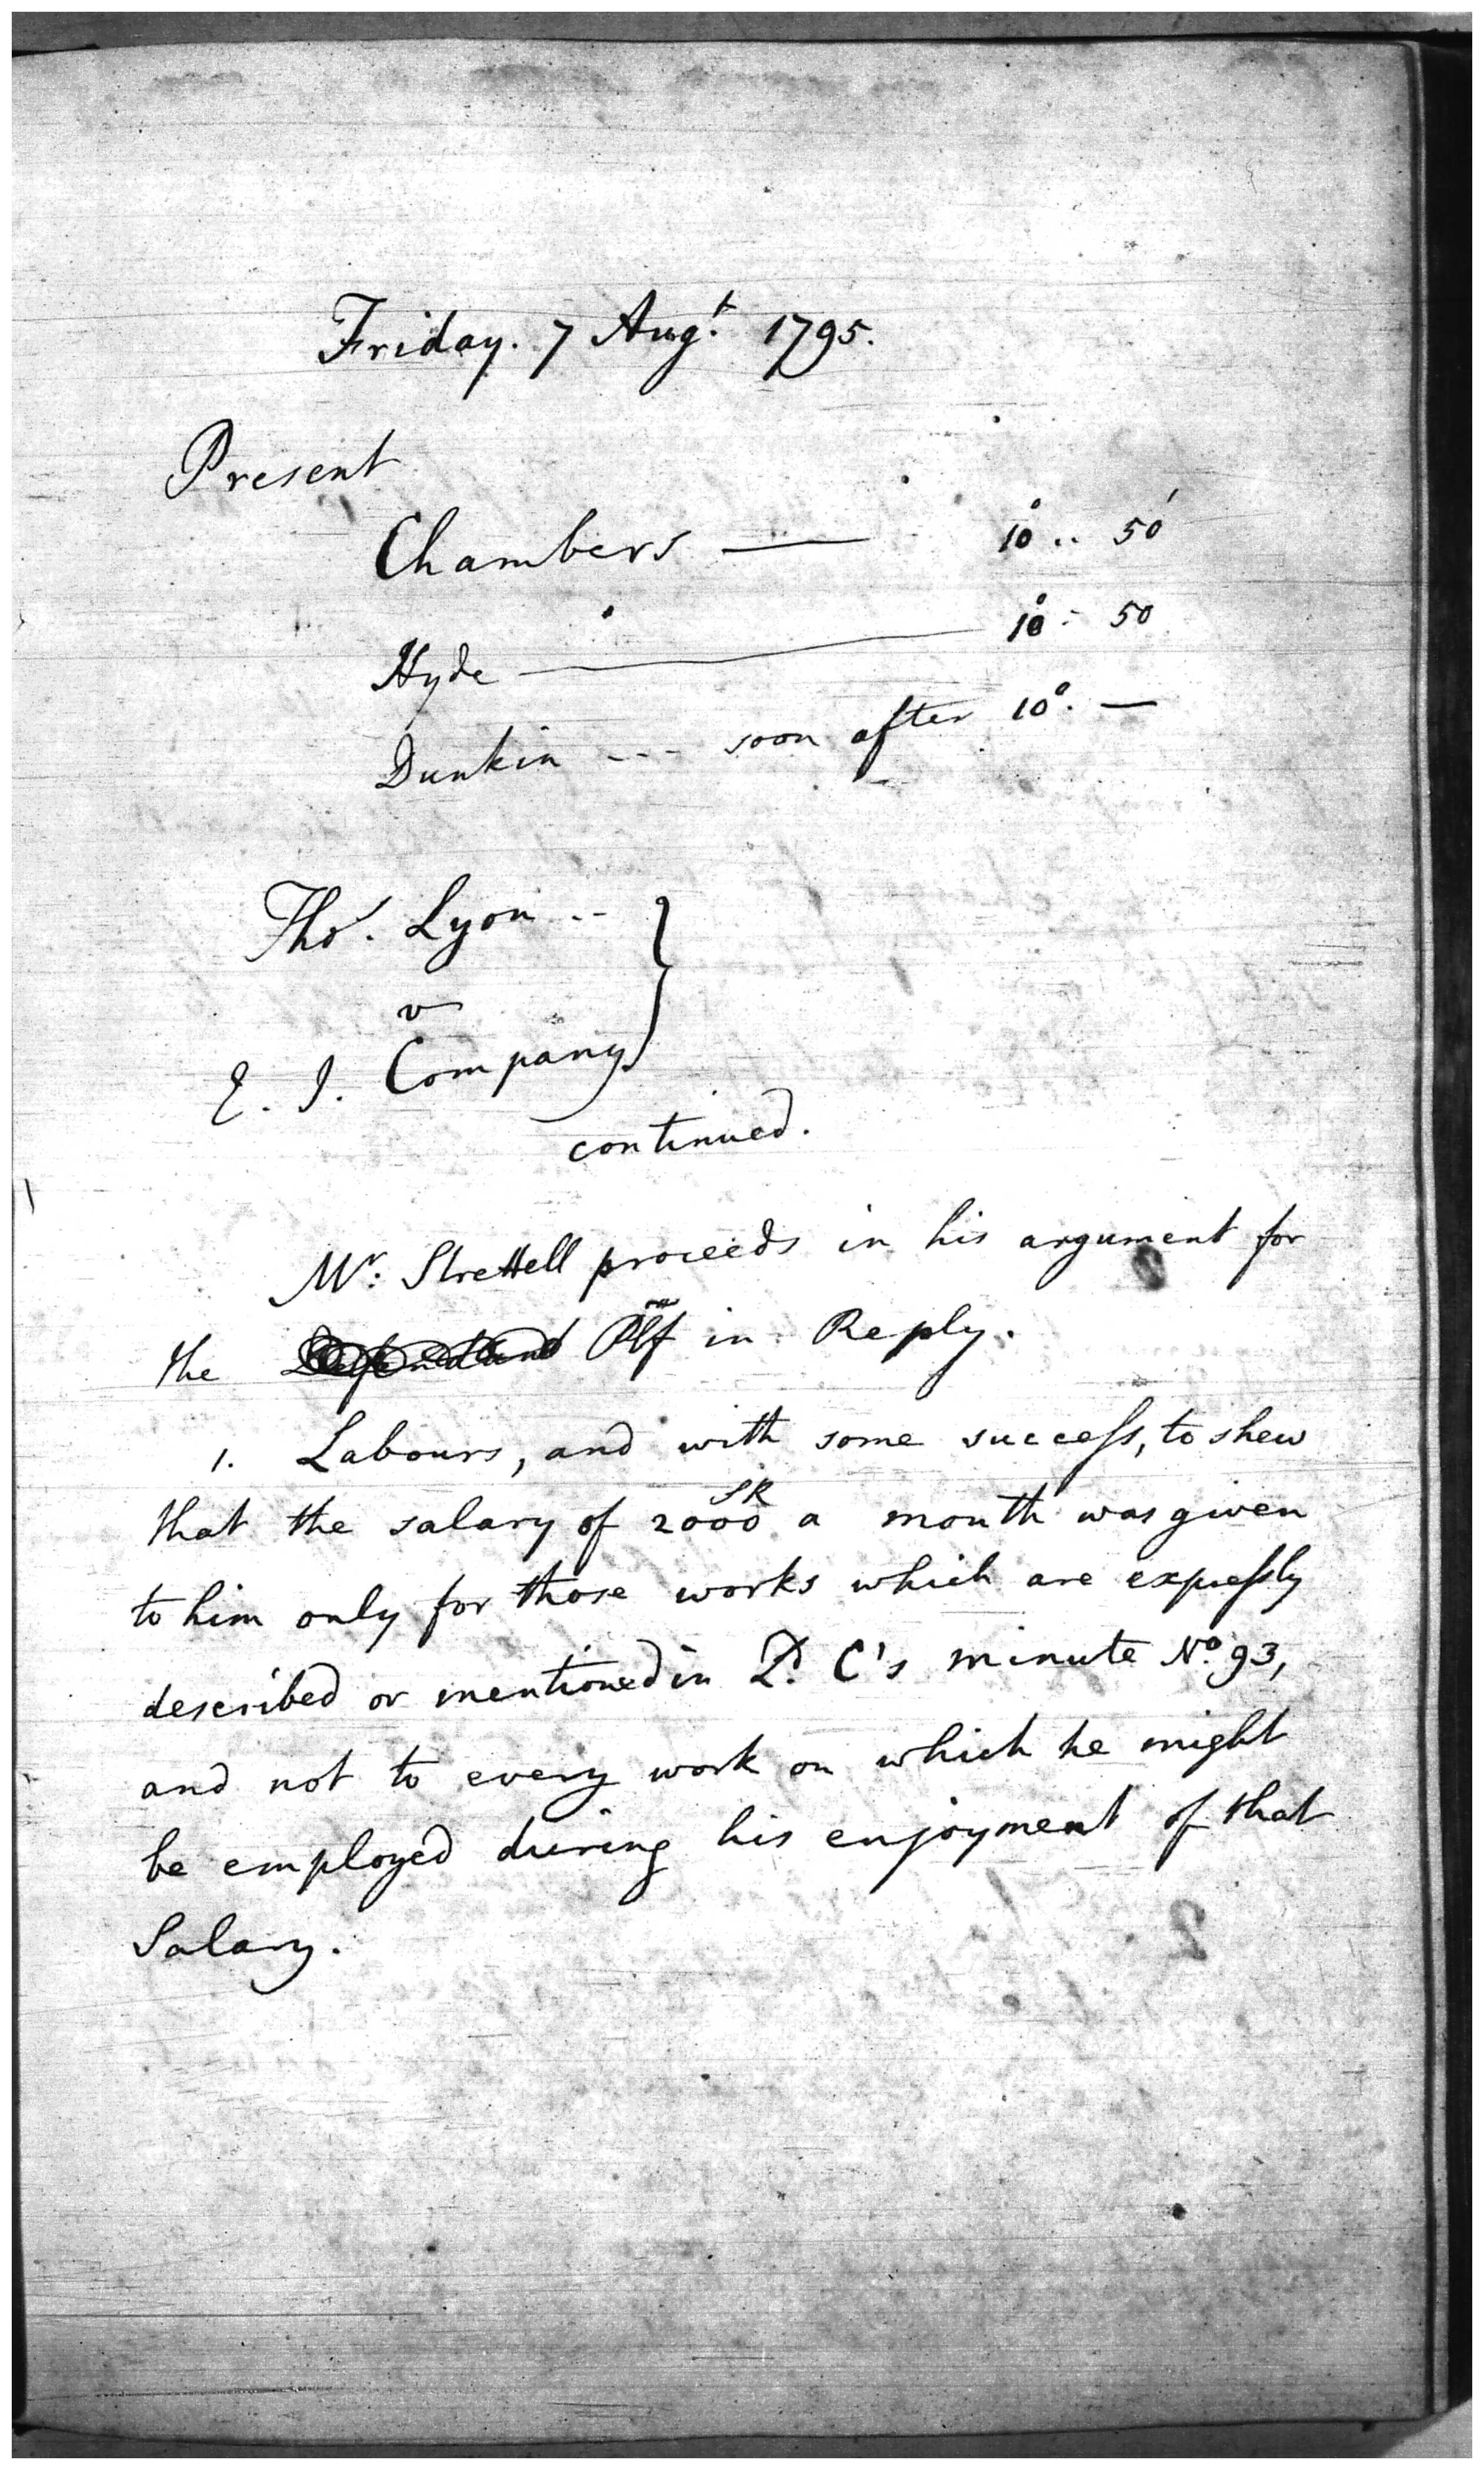 Friday. 7 Augt. 1795.
Present
Chambers — 10° .. 50'
Hyde — 10° - 50
Dunkin --- soon after 10°. —
Thos. Lyon --
v
E. I. Company
continued.
Mr: Strettell proceeds in his argument for
the Defendant Plf in Reply.
1. Labours, and with some success, to shew
that the salary of 2000 SR a month was given
to him only for those works which are expressly
described or mentioned in Ld. C's minute No. 93,
and not to every work on which he might
be employed during his enjoyment of that
Salary.